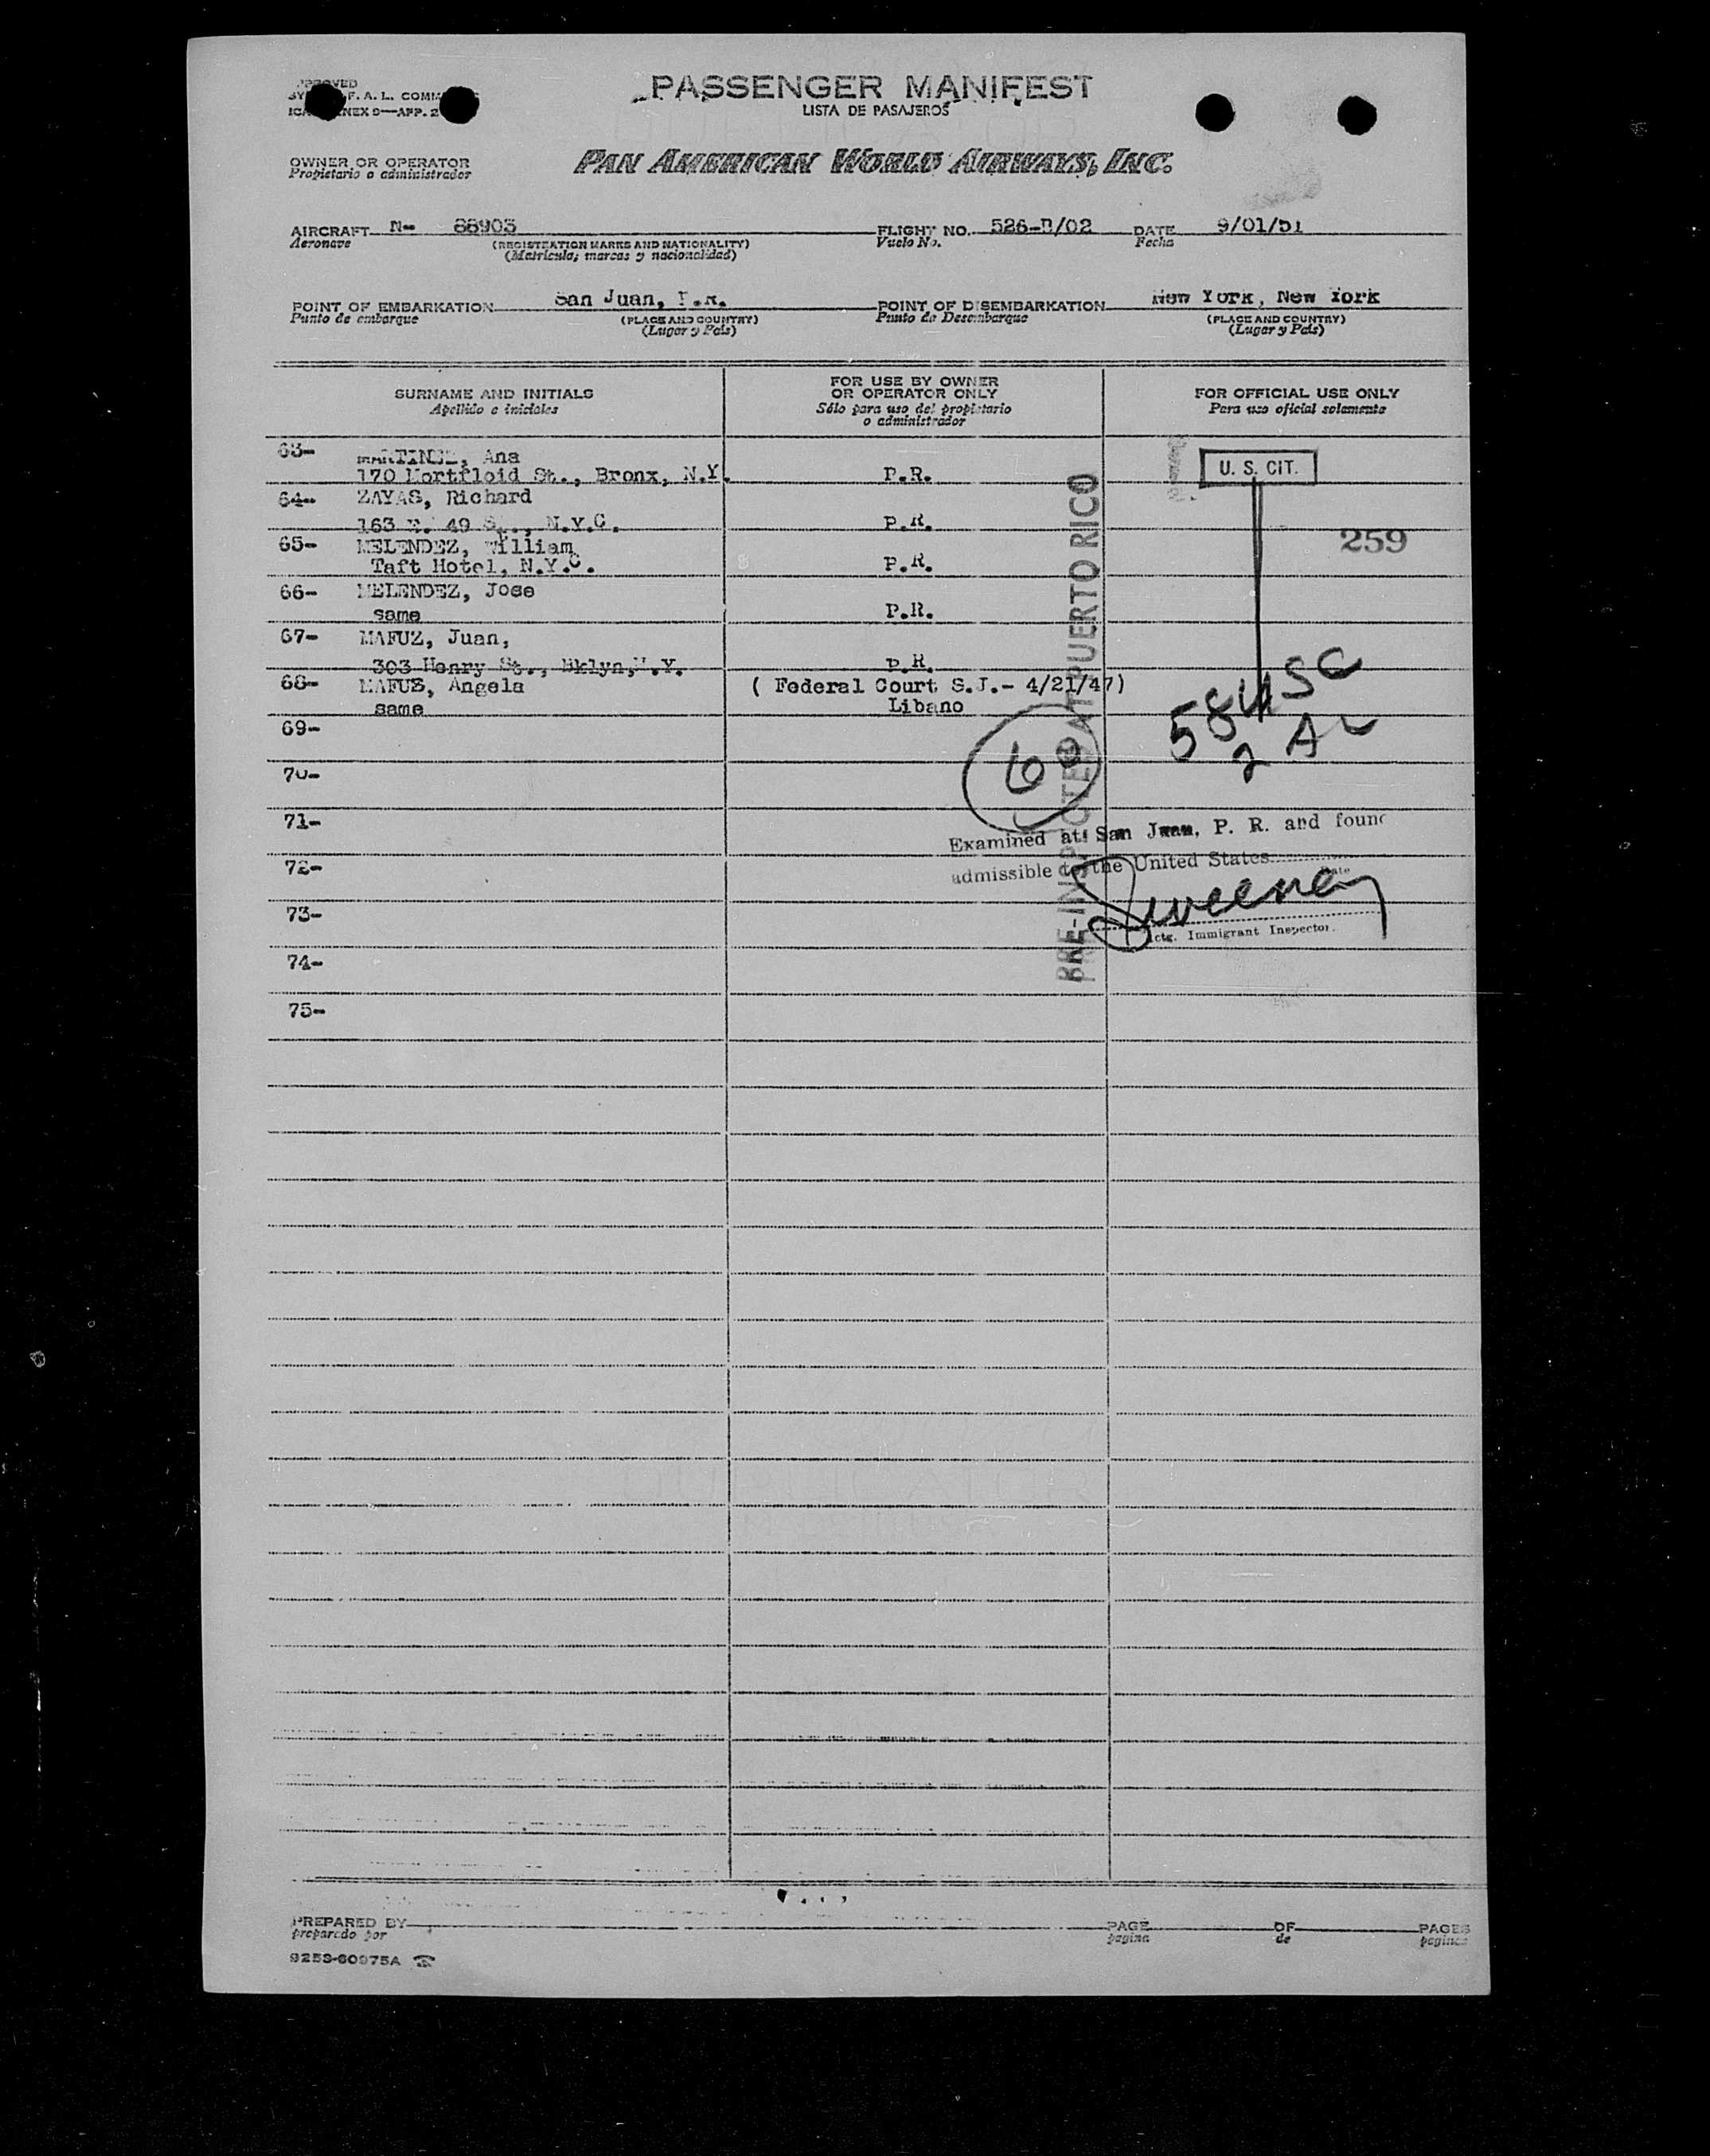 PASSENGER MANIFEST
LISTA DE PASAJEROS
F. A. L. COMM
NEX 9—APP. 2
OWNER OR OPERATOR
Propietario o administrador
PAN AMERICAN WORLD AIRWAYS, INC.
AIRCRAFT N- 88903 FLIGHT NO. 526-B/02 DATE 9/01/51
Aeronave (REGISTRATION MARKS AND NATIONALITY) Vuelo No. Fecha
(Matricula, marcas y nacionalidad)
POINT OF EMBARKATION San Juan, P.R. POINT OF DISEMBARKATION New York, New York
Punto de embarque (PLACE AND COUNTRY) Punto de Desembarque (PLACE AND COUNTRY)
(Lugar y País) (Lugar y País)
SURNAME AND INITIALS FOR USE BY OWNER OR OPERATOR ONLY FOR OFFICIAL USE ONLY
Apellido e iniciales Sólo para uso del propietario o administrador Para uso oficial solamente
63- MARTINEZ, Ana
170 St., Bronx, N.Y. P.R. U. S. CIT.
64- ZAYAS, Richard
163 E. 49 St., N.Y.C. P.R.
65- MELENDEZ, William 259
Taft Hotel, N.Y.C. P.R.
66- MELENDEZ, Jose
same P.R.
67- MAFUZ, Juan,
303 Henry St., Bklyn, N.Y. P.R.
68- MAFUZ, Angela ( Federal Court S.J.- 4/21/47)
same Libano
58 USC
2 AL
60
69-
70-
71-
72-
73-
74-
75-
PRE-INSPECTED AT PUERTO RICO
Examined at San Juan, P. R. and found
admissible to the United States
Sweeney
Actg. Immigrant Inspector.
PREPARED BY PAGE OF PAGES
preparado por pagina de paginas
9253-60975A